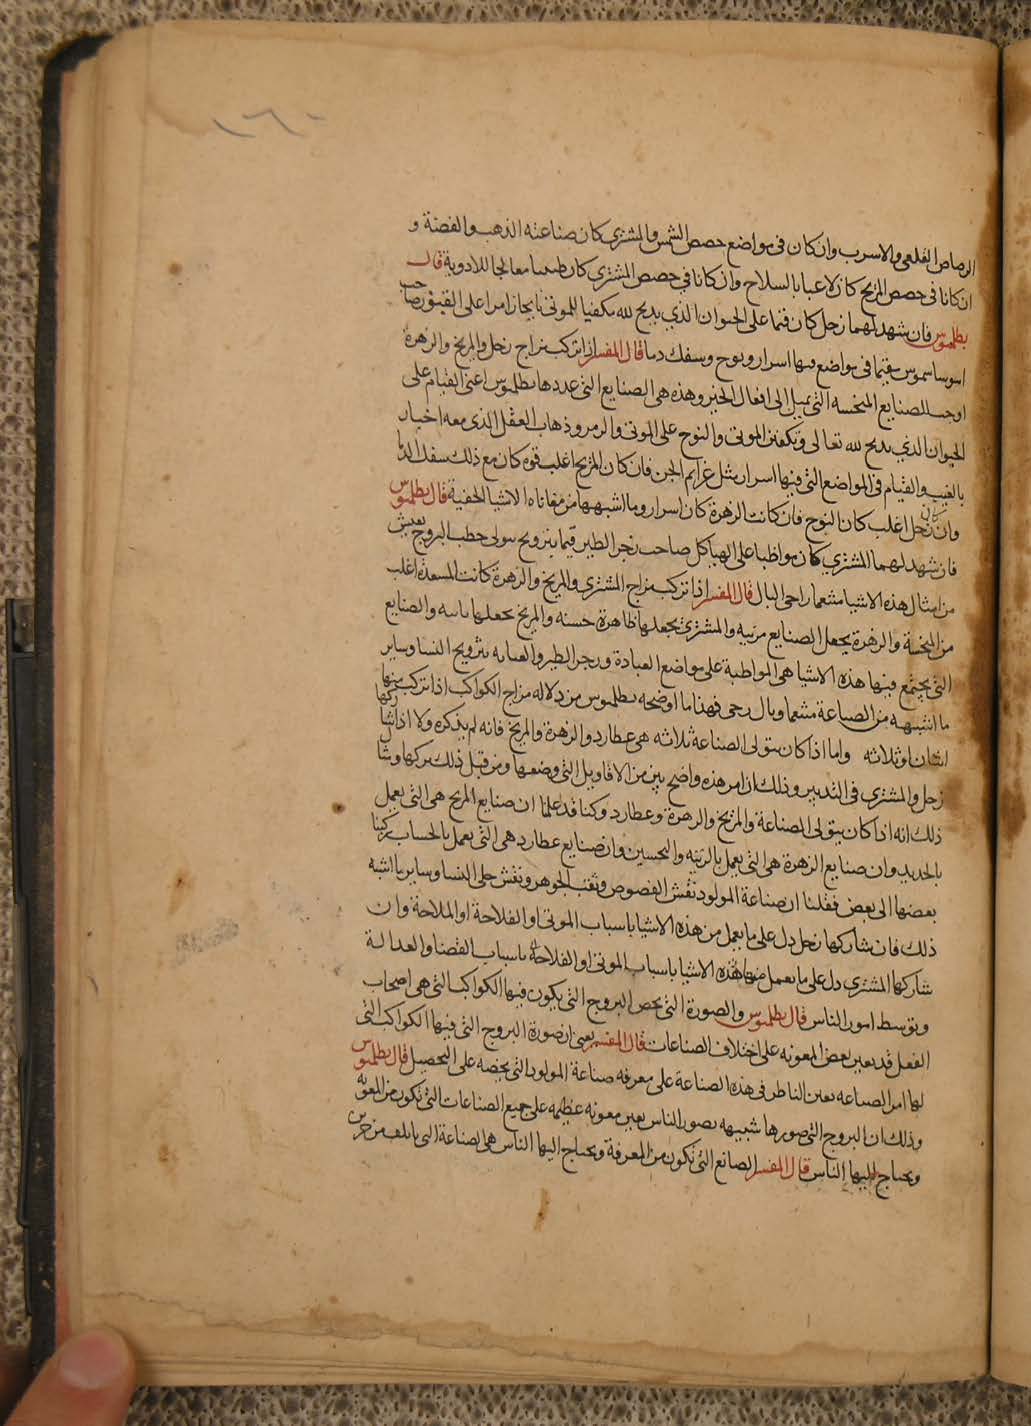 ١٦٠
الرصاص القلعي والاسرب وان كان في مواضع حصص الشمس والمشتري كان صناعته الذهب والفضة و
ان كانا في حصص المريخ كان لاعبا بالسلاح وان كانا في حصص المشتري كان طبيبا معالجا للادوية قال
بطلميوس فان شهد لهما زحل كان قيما على الحيوان الذي يذبح لله مكفنا للموتى
في مواضع فيها اسرار ونوح وسفك دما قال المفسر اذا تركب مزاج زحل والمريخ والزهرة
الصنايع المنحسه التي تميل الى افعال الخير وهذه هي الصنايع التي عددها بطلميوس اعني القيام على
الحيوان الذي يذبح لله تعالى وتكفين الموتى والنوح على الموتى والزمر وذهاب العقل الذي معه اخبار
بالغيب والقيام في المواضع التي فيها اسرار مثل عزايم الجن فان كان المريخ اغلب قوه كان مع ذلك سفك الدما
وان كان زحل اغلب كان النوح فان كانت الزهرة كان اسرار وما اشبهها من مفاناه الاشيا الخفية قال بطلميوس
فان شهد لهما المشتري كان مواظبا على الهياكل صاحب زجر الطير قيما بتزويج يعيش
من امثال هذه الاشيا راخي البال قال المفسر اذا تركب مزاج المشتري والمريخ والزهرة كانت المسعدة اغلب
من النحسة والزهرة يجعل الصنايع مزينه والمشتري يجعلها ظاهرة حسنه والمريخ يجعلها والصنايع
التي يجتمع فيها هذه الاشيا هي المواظبة على مواضع العبادة وزجر الطير والعنايه بتزويج النسا وساير
ما اشبهه من الصناعة وبال رخي فهذا ما اوضحه بطلميوس من دلاله مزاج الكواكب اذا تركب منها
اثنان او ثلاثه واما اذا كان يتولى الصناعة ثلاثه هي عطارد والزهرة والمريخ فانه لم يذكره ولا اذا شاركها
زحل والمشتري في التدبير وذلك ان امر هذه واضح بين من الاقاويل التي وضعها ومن قبل ذلك تركها
ذلك انه اذا كان يتولى الصناعة والمريخ والزهرة وعطارد وكنا قد علمنا ان صنايع المريخ هي التي يعمل
بالحديد وان صنايع الزهرة هي التي يعمل بالزينه والتحسين وان صنايع عطارد هي التي يعمل بالحساب ركبنا
بعضها الى بعض فقلنا ان صناعة المولود نقش الفصوص وثقب الجوهر ونقش حلي النسا وساير ما اشبه
ذلك فان شاركها زحل دل على ما يعمل من هذه الاشيا باسباب الموتى او الفلاحة او الملاحة وان
شاركها المشتري دل على ما يعمل من هذه الاشيا باسباب الموتى او الفلاحة باسباب القضا والعدالة
وتوسط امور الناس قال بطلميوس والصورة التي تخص البروج التي يكون فيها الكواكب التي هي اصحاب
الفعل قد يعين بعض المعونه على اختلاف الصناعات قال المفسر يعني ان صورة البروج التي فيها الكواكب التي
لها امر الصناعه يعين الناظر في هذه الصناعة على معرفه صناعة المولود التي يخصه على التحصيل قال بطلميوس
وذلك ان البروج التي صورها شبيهه بصور الناس يعين معونه عظيمه على جميع الصناعات التي تكون من المعرفة
ويحتاج اليها الناس قال المفسر الصانع التي تكون من المعرفة ويحتاج اليها الناس هي الصناعة التي